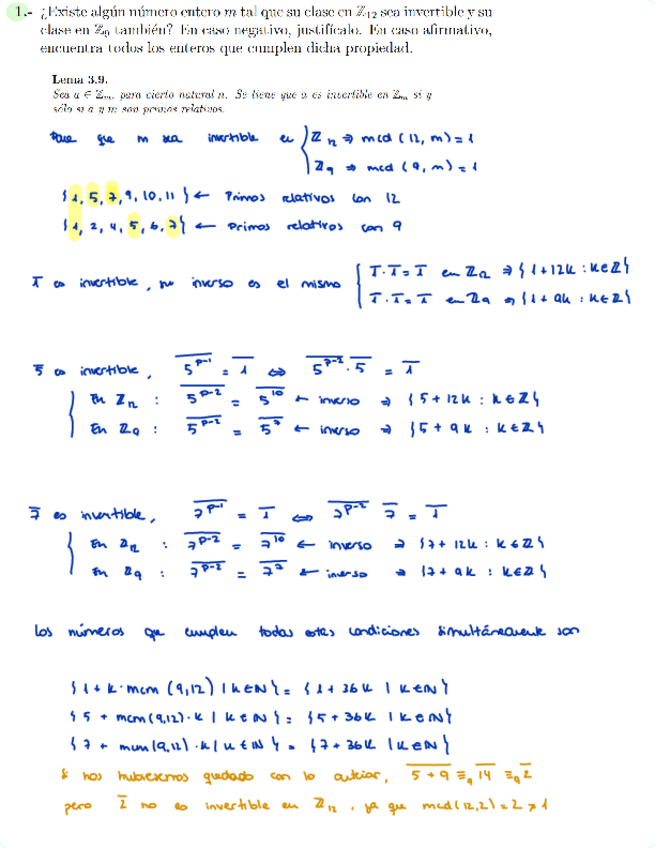 1.- ¿Existe algún número entero m tal que su clase en ℤ₁₂ sea invertible y su
clase en ℤ₉ también? En caso negativo, justifícalo. En caso afirmativo,
encuentra todos los enteros que cumplen dicha propiedad.
Lema 3.9.
Sea a ∈ ℤₘ, para cierto natural n. Se tiene que a es invertible en ℤₘ si y
sólo si a y m son primos relativos.
Para que m sea invertible en { ℤ₁₂ ⇒ mcd (12, m) = 1
ℤ₉ ⇒ mcd (9, m) = 1
{1, 5, 7, 9, 10, 11} ← Primos relativos con 12
{1, 2, 4, 5, 6, 7} ← Primos relativos con 9
1̅ es invertible, su inverso es el mismo { 1̅ · 1̅ = 1̅ en ℤ₁₂ ⇒ {1 + 12k : k ∈ ℤ}
1̅ · 1̅ = 1̅ en ℤ₉ ⇒ {1 + 9k : k ∈ ℤ}
5̅ es invertible, \overline{5^{p-1}} = 1̅ ⇔ \overline{5^{p-2}} · 5̅ = 1̅
{ En ℤ₁₂ : \overline{5^{p-2}} = \overline{5^{10}} ← inverso ⇒ {5 + 12k : k ∈ ℤ}
En ℤ₉ : \overline{5^{p-2}} = \overline{5^{7}} ← inverso ⇒ {5 + 9k : k ∈ ℤ}
7̅ es invertible, \overline{7^{p-1}} = 1̅ ⇔ \overline{7^{p-2}} 7̅ = 1̅
{ En ℤ₁₂ : \overline{7^{p-2}} = \overline{7^{10}} ← inverso ⇒ {7 + 12k : k ∈ ℤ}
En ℤ₉ : \overline{7^{p-2}} = \overline{7^{7}} ← inverso ⇒ {7 + 9k : k ∈ ℤ}
Los números que cumplen todas estas condiciones simultáneamente son
{1 + k · mcm (9,12) | k ∈ ℕ} = {1 + 36k | k ∈ ℕ}
{5 + mcm (9,12) · k | k ∈ ℕ} = {5 + 36k | k ∈ ℕ}
{7 + mcm (9,12) · k | k ∈ ℕ} = {7 + 36k | k ∈ ℕ}
Si nos hubiésemos quedado con lo anterior, \overline{5 + 9} ≡₉ \overline{14} ≡₉ 2̅
pero 2̅ no es invertible en ℤ₁₂, ya que mcd (12,2) = 2 ≠ 1